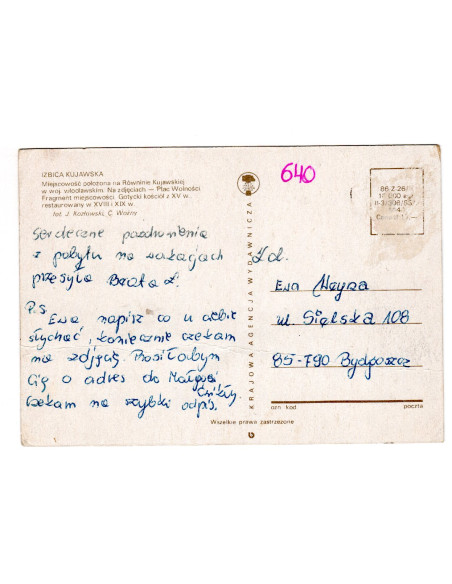 IZBICA KUJAWSKA
Miejscowość położona na Równinie Kujawskiej
w woj. włocławskim. Na zdjęciach — Plac Wolności
Fragment miejscowości. Gotycki kościół z XV w.,
restaurowany w XVIII i XIX w.
fot. J. Kozłowski, C. Woźny
640
86 Z 26/II
Serdeczne pozdrowienia
z pobytu na wakacjach
przesyła Beata Ł.
P.S
Ewa napisz co u ciebie
słychać, koniecznie czekam
na zdjęcia. Prosiłabym
Cię o adres do Małgosi
Czekam na szybki odpis.
KRAJOWA AGENCJA WYDAWNICZA
Ewa
ul. Sielska 108
85-790 Bydgoszcz
ozn. kod poczta
Wszelkie prawa zastrzeżone